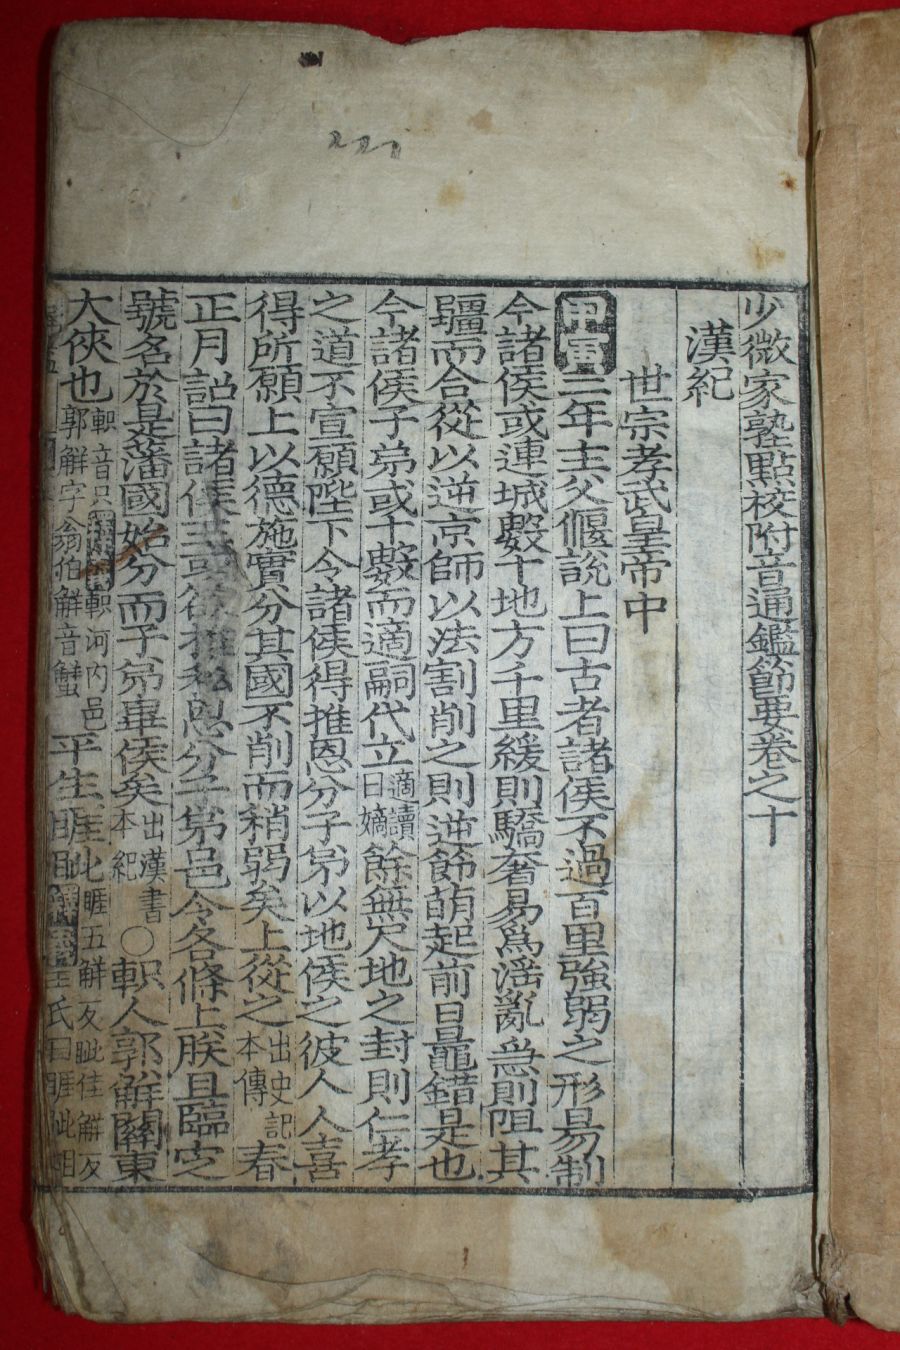 少微家塾點校附音通鑑節要卷之十
漢紀
世宗孝武皇帝中
甲寅三年主父偃說上曰古者諸侯不過百里強弱之形易制
今諸侯或連城數十地方千里緩則驕奢易爲淫亂急則阻其
疆而合從以逆京師以法割削之則逆節萌起前日鼂錯是也
今諸侯子弟或十數而適嗣代立適讀曰嫡餘無尺地之封則仁孝
之道不宣願陛下令諸侯得推恩分子弟以地侯之彼人人喜
得所願上以德施實分其國不削而稍弱矣上從之出史記本傳春
正月詔曰諸侯王或欲推私恩分子弟邑令各條上朕且臨定
號名於是藩國始分而子弟畢侯矣出漢書本紀○軹人郭解關東
大俠也軹音只軹河內邑郭解字翁伯解音蟹平生睚眦睚五解反眦仕解反